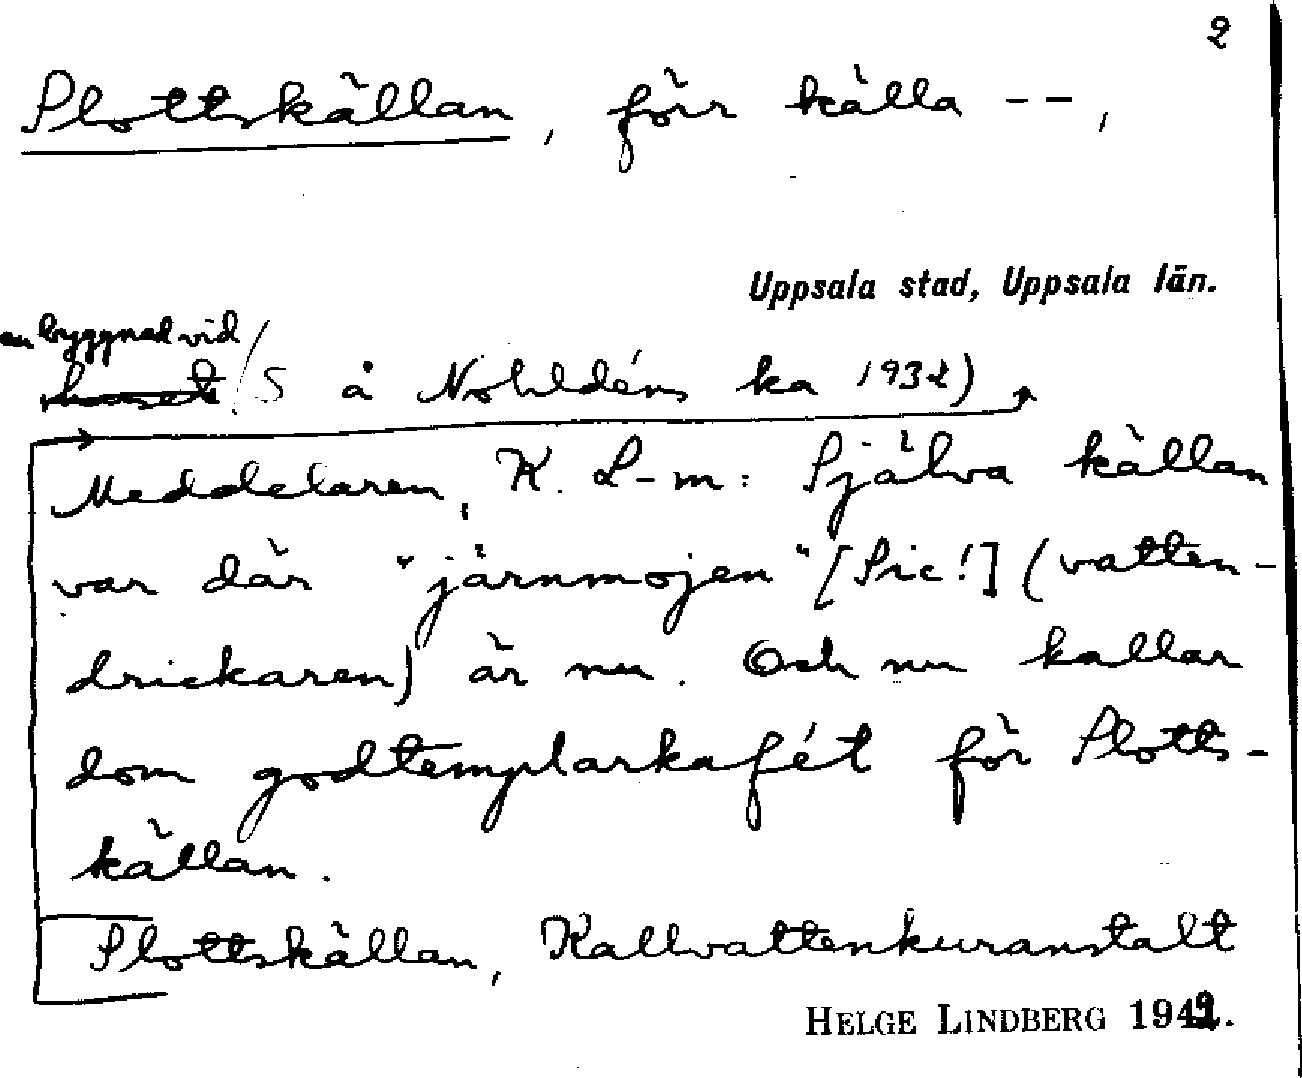 2
Slottskällan, förr källa --,
Uppsala stad, Uppsala län.
en byggnad vid
huset / S å Nohldéns ka 1932)
Meddelaren, K. L-m: Själva källan
var där "järnmojen" [Sic!] (vatten-
drickaren) är nu. Och nu kallar
dom godtemplarkafét för Slotts-
källan.
Slottskällan, Kallvattenkuranstalt
HELGE LINDBERG 1942.